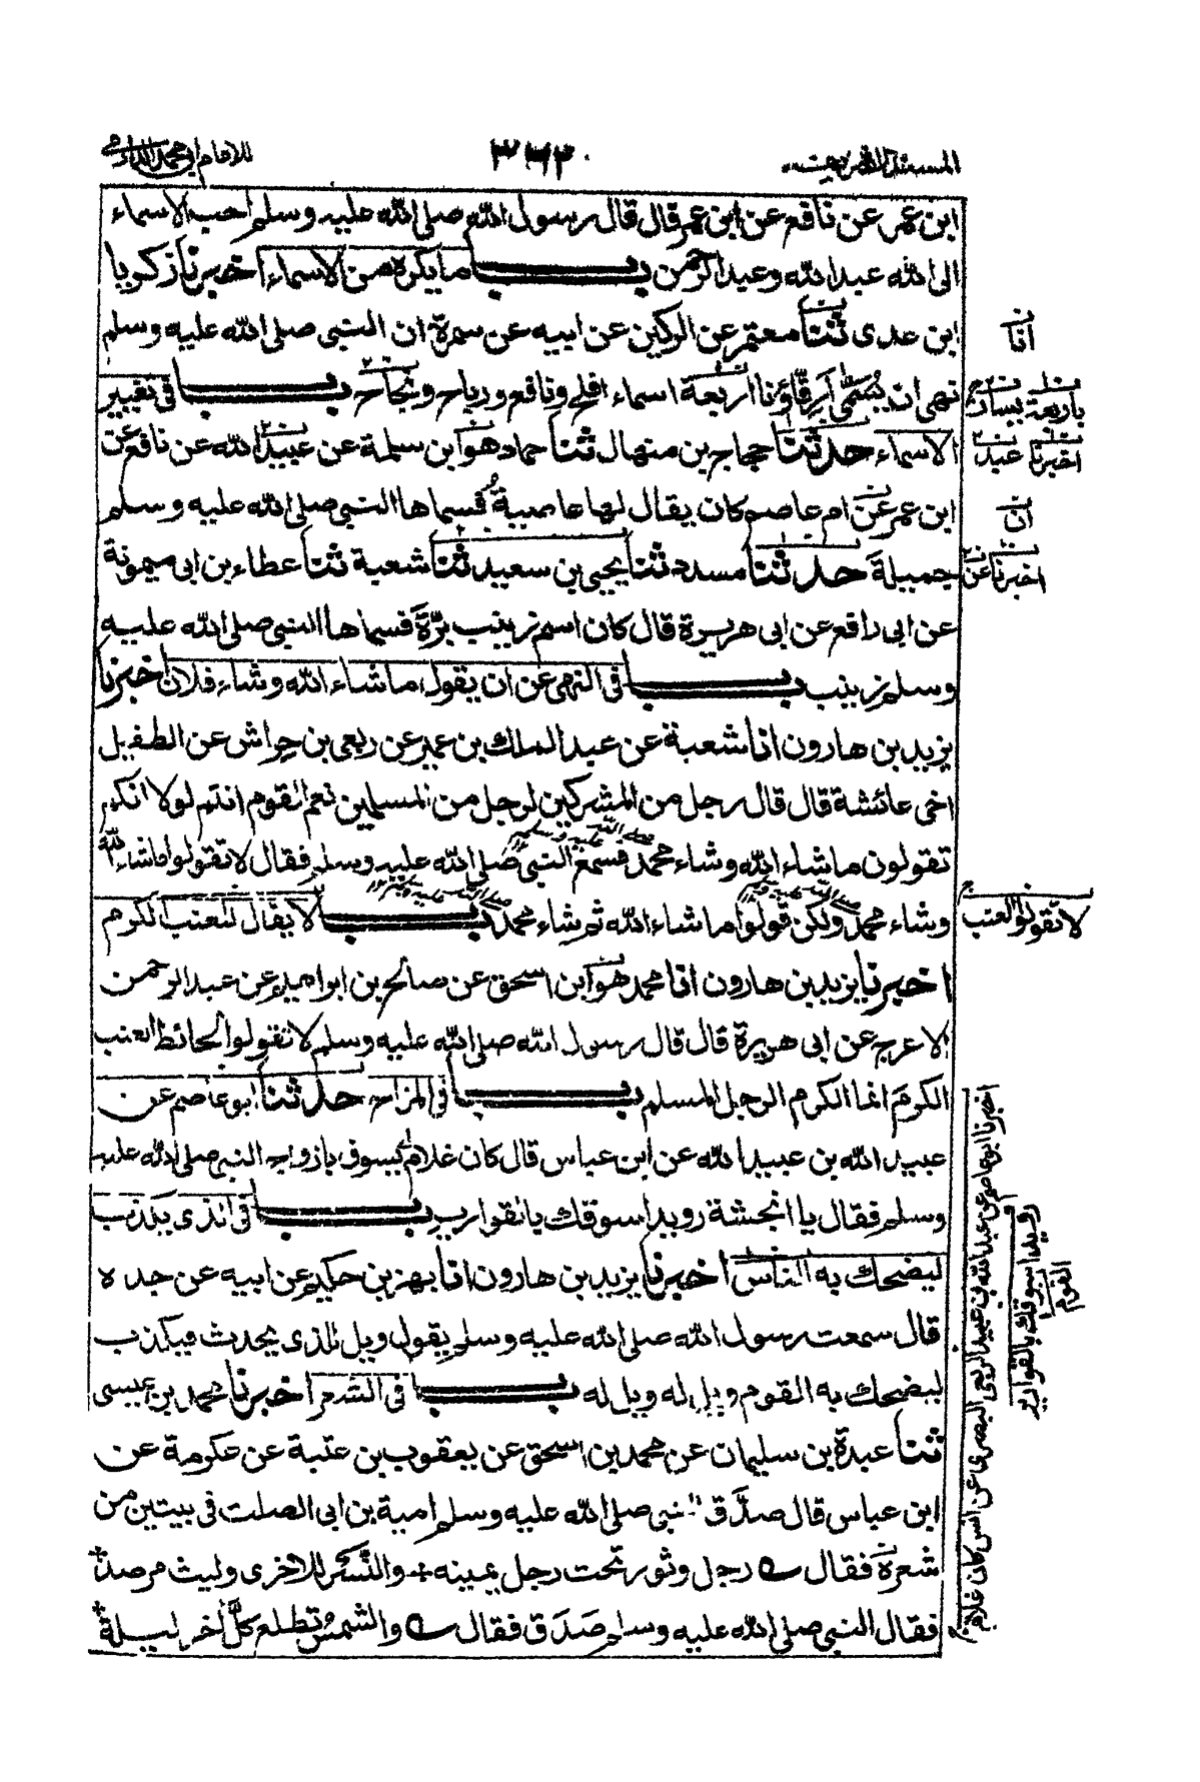 للامام ابی محمد الدارمی
٣٦٢
المسند الشريف
ابن عمر عن نافع عن ابن عمر قال قال رسول الله صلى الله عليه وسلم احب الاسماء
الى الله عبد الله وعبد الرحمن باب ما يكره من الاسماء اخبرنا زكريا
ابن عدى ثنا معتمر عن الركين عن ابيه عن سمرة ان النبي صلى الله عليه وسلم
نهى ان يُسَمّى اَرِقّاؤنا اربعة اسماء افلح ونافع ورباح ونجاح باب فى تغيير
الاسماء حدثنا حجاج بن منهال ثنا حماد هو ابن سلمة عن عبيد الله عن نافع عن
ابن عمر عن ام عاصم كان يقال لها عاصية فسماها النبي صلى الله عليه وسلم
جميلة حدثنا مسدد ثنا يحيى بن سعيد ثنا شعبة ثنا عطاء بن ابى ميمونة
عن ابى رافع عن ابى هريرة قال كان اسم زينب بَرّة فسماها النبي صلى الله عليه
وسلم زينب باب فى النهى عن ان يقول ما شاء الله وشاء فلان اخبرنا
يزيد بن هارون انا شعبة عن عبد الملك بن عمير عن ربعى بن حِراش عن الطفيل
اخى عائشة قال قال رجل من المشركين لرجل من المسلمين نعم القوم انتم لولا انكم
تقولون ما شاء الله وشاء محمد فسمع النبي صلى الله عليه وسلم فقال لا تقولوا ما شاء الله
وشاء محمد ولكن قولوا ما شاء الله ثم شاء محمد باب لا يقال للعنب الكرم
اخبرنا يزيد بن هارون انا محمد هو ابن اسحق عن صالح بن ابراهيم عن عبد الرحمن
الاعرج عن ابى هريرة قال قال رسول الله صلى الله عليه وسلم لا تقولوا لحائط العنب
الكرمَ انما الكرم الرجل المسلم باب فى المزاح حدثنا ابو عاصم عن
عبيد الله بن عبيد الله عن ابن عباس قال كان غلام يسوق بازواج النبي صلى الله عليه
وسلم فقال يا انجشة رويدا سوقك بالقوارير باب فى الذى يكذب
ليضحك به الناس اخبرنا يزيد بن هارون انا بهز بن حكيم عن ابيه عن جده
قال سمعت رسول الله صلى الله عليه وسلم يقول ويل للذى يحدث فيكذب
ليضحك به القوم ويل له ويل له باب فى الشعر اخبرنا محمد بن عيسى
ثنا عبدة بن سليمان عن محمد بن اسحق عن يعقوب بن عتبة عن عكرمة عن
ابن عباس قال صدَّق النبي صلى الله عليه وسلم امية بن ابى الصلت فى بيتين من
شعره فقال رجل وثور تحت رجل يمينه والنَّسر للاخرى وليث مرصد
فقال النبي صلى الله عليه وسلم صَدَق فقال والشمسُ تطلع كلَّ آخر ليلة
انا
باربعة يسار
اخبرنا عبد
ان
اخبرنا عن
لا تقولوا العنب
اخبرنا ابو عاصم عن عبد الله بن عبيد الربعى البصرى عن انس كان غلام
رويدا سوقك بالقوارير
القوم